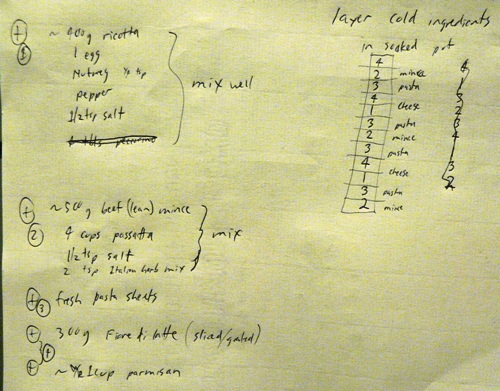 + ~ 400g ricotta
1 1 egg
Nutmeg 1/2 tsp
pepper
1/2 tsp salt
mix well
+ ~ 500g beef (lean) mince
2 4 cups passatta
1/2 tsp salt
2 tsp Italian herb mix
mix
+ 3 fresh pasta sheets
+ 300g Fiore di latte (sliced/grated)
4
+ ~ 1 cup parmisan
layer cold ingredients
in soaked pot
4
2 mince
3 pasta
4
1 cheese
3 pasta
2 mince
3 pasta
4
1 cheese
3 pasta
2 mince